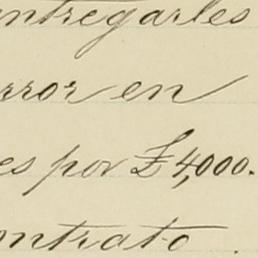 entregarles
error en
es por £4,000.
ontrato.